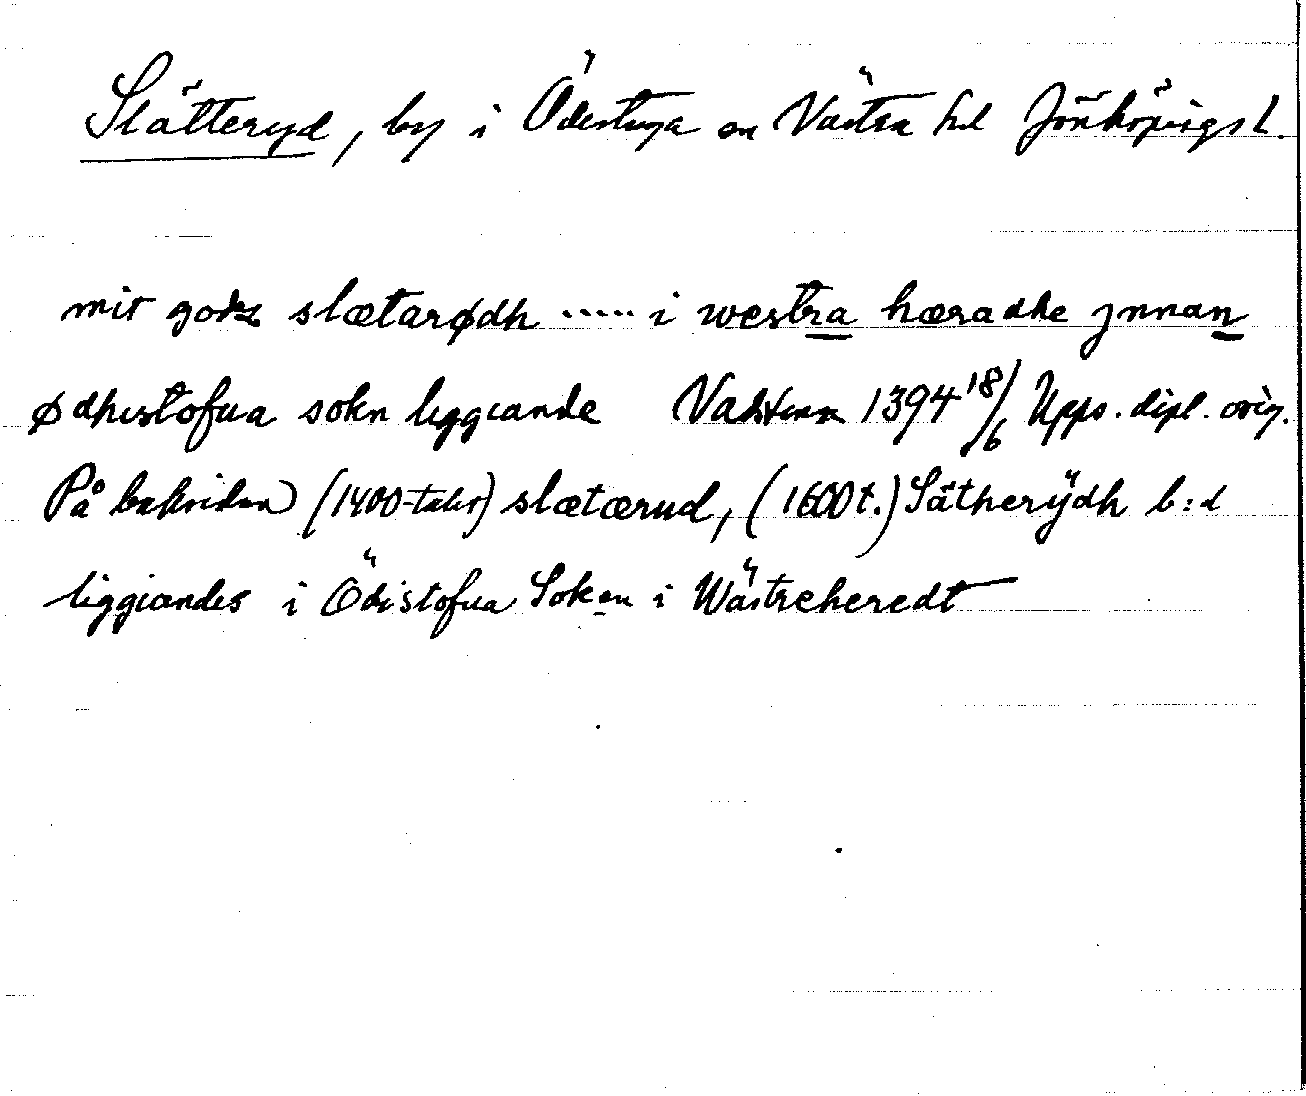 Slätteryd, by i Ödestuga sn Västra hd Jönköpings l.
mit godz slætarødh ..... i westra hæradhe jnnan
ødhistofua sokn liggiande Vadstena 1394 18/6 Upps. dipl. orig.
På baksidan (1400-talet) slætærud, (1600 t.) Sätherÿdh b:d
liggiandes i Ödistofua Soken i Wästreheredt